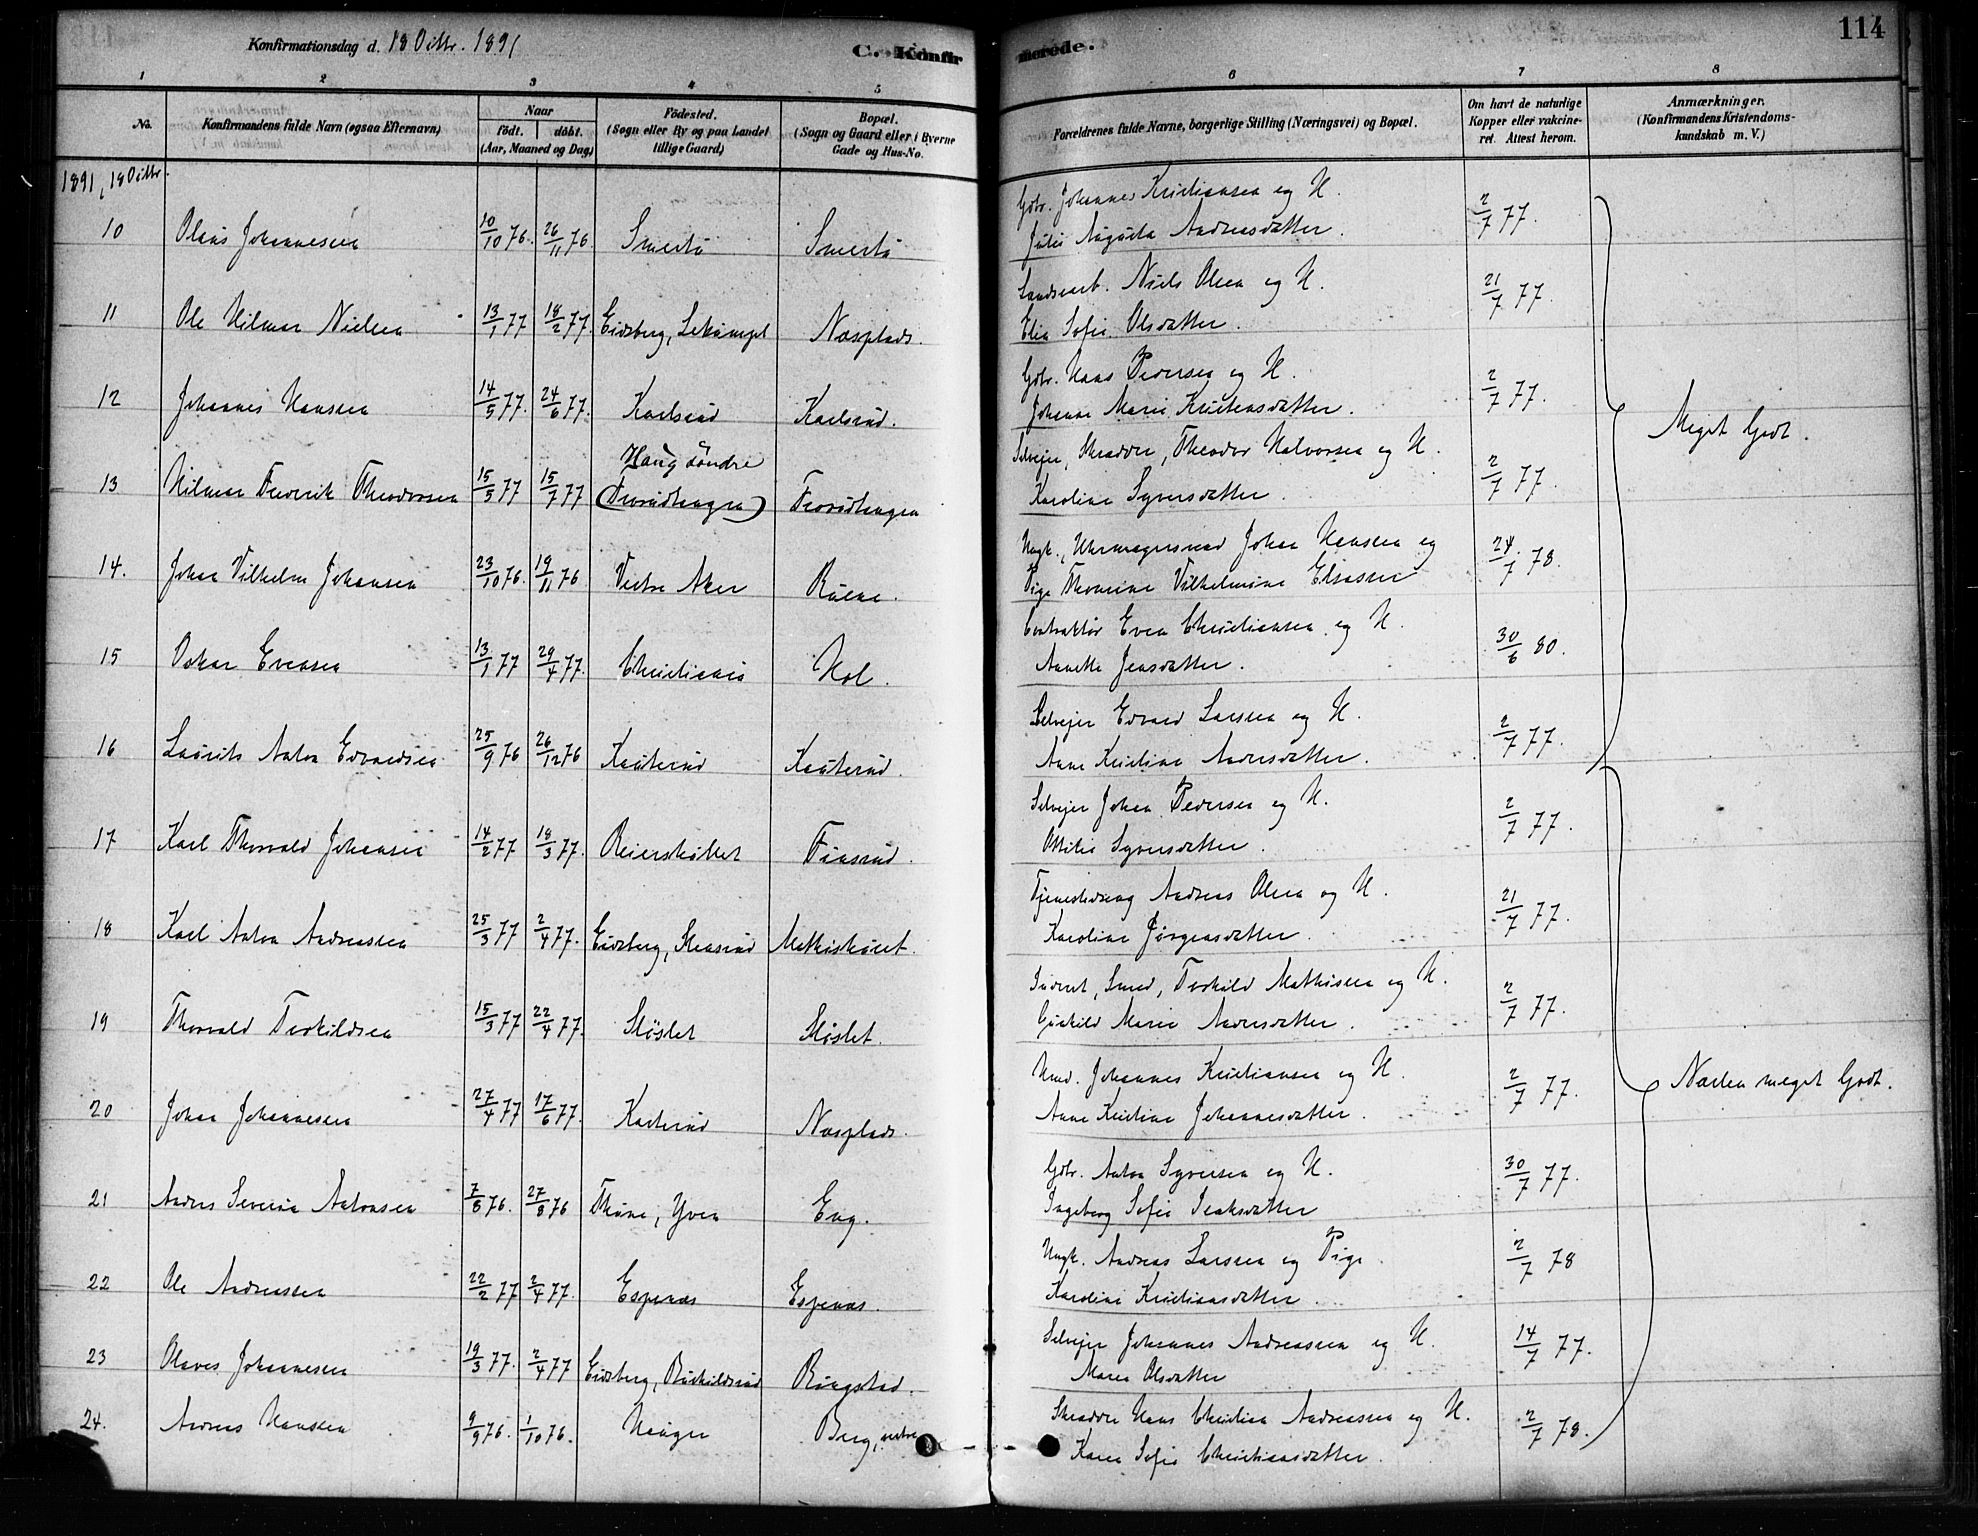 Konfirmationsdag d. 18 Octbr. 1891
C. Konfirmerede.
114
1 2 3 4 5 6 7 8
No. | Konfirmandens fulde Navn (ogsaa Efternavn) | Naar født. døbt. (Aar, Maaned og Dag) | Födested. (Sogn eller By og paa Landet tillige Gaard) | Bopæl. (Sogn og Gaard eller i Byerne Gade og Hus-No. | Forældrenes fulde Navne, borgerlige Stilling (Næringsvei) og Bopæl. | Om havt de naturlige Kopper eller vakcineret. Attest herom. | Anmærkninger. (Konfirmandens Kristendomskundskab m. V.)
1891, 18 Octbr.
10 Olaus Johannesen 10/10 76. 26/11 76. Smertu Smertu Gbr. Johannes Kristiansen og H. 2/7 77.
Julie Augusta Andreasdatter.
11 Ole Hilmar Nielsen 13/1 77 18/2 77. Eidsberg, Næsplads. Niels Olsen og H. 21/7 77.
Elin Sofie Olsdatter.
12 Johannes Hansen 14/5 77. 24/6 77. Karlsrud Karlsrud. Gbr. Hans Pedersen og H. 2/7 77.
Johanne Marie Kristensdatter.
13 Hilmar Frederik Theodorsen 15/5 77 15/7 77 Haug søndre Selvejer, Skrædder, Theodor Halvorsen og H. 2/7 77.
Karoline Syversdatter.
14. Johan Vilhelm Johansen 23/10 76. 19/11 76 Vestre Aker Ungk., Uhrmagersvend Johan Hansen og 24/7 78.
Pige Thomine Vilhelmine
15 Oskar Evensen 13/1 77 29/4 77. Christiania Hol. Even Christiansen og H. 30/6 80.
Annette Jensdatter.
16 Laurits Anton Edvardsen 25/9 76 26/12 76 Kaaterud Kaaterud. Selvejer Edvard Larsen og H. 2/7 77.
Anne Kristine Andersdatter.
Meget Godt.
17 Karl Thorvald Johansen 14/2 77 18/3 77. Finsrud. Selvejer Johan Pedersen og H. 2/7 77.
Ottilie Syversdatter.
18 Karl Anton Andreassen 25/3 77 2/4 77. Eidsberg, Andreas Olsen og H. 21/7 77.
Karoline Jørgensdatter.
19 Thorvald Torkildsen 15/3 77 22/4 77. Sløslet Sløslet. Inderst, Smed, Torkild Mathisen og H. 2/7 77.
Marie Andersdatter.
20 Johan Johannesen 27/4 77 17/6 77. Næsplads. Johannes Kristiansen og H. 2/7 77.
Anne Kristine Johannesdatter.
Næsten meget Godt.
21 Anders Severin Antonsen 7/8 76. 27/8 76 Thune, Yven Eng. Gbr. Anton Syversen og H. 30/7 77.
Ingeborg Sofie Isaksdatter
22 Ole Andreassen 22/2 77 2/4 77. Espenæs Espenæs. Ungk. Andreas Larsen og Pige 2/7 78
Karoline Kristiansdatter.
23 Olaves Johannesen 19/3 77. 2/4 77 Eidsberg, Ringstad. Selvejer Johannes Andreassen og H. 14/7 77.
Maren Olsdatter
24. Andreas Hansen 9/9 76. 1/10 76. Hauger Berg, Skrædder Hans Christian Andreassen og H. 2/7 78.
Karen Sofie Christiansdatter.